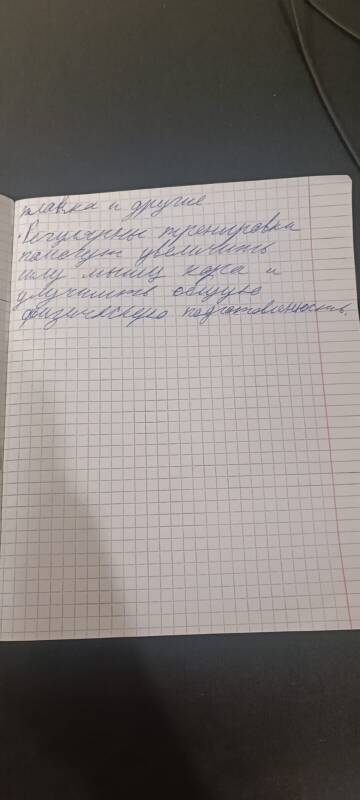 плавка и другие
• Регулярны тренировка
помогут увеличить
силу мышц кора и
улучшить общую
физическую подготовленность.